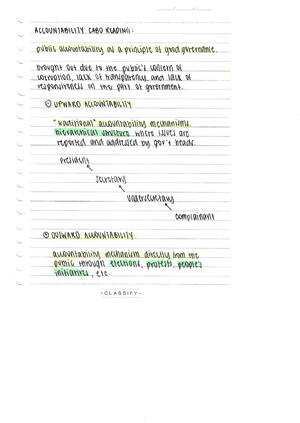 ACCOUNTABILITY CABO READING:
public accountability as a principle of good governance.
brought out due to the public's concern of
corruption, lack of transparency, and lack of
responsiveness on the part of government.
① UPWARD ACCOUNTABILITY
"traditional" accountability mechanisms.
hierarchical structure where issues are
reported and addressed by gov't heads.
president
secretary
undersecretary
complainant
② OUTWARD ACCOUNTABILITY
accountability mechanism directly from the
public through elections, protests, people's
initiatives, etc.
-CLASSIFY-